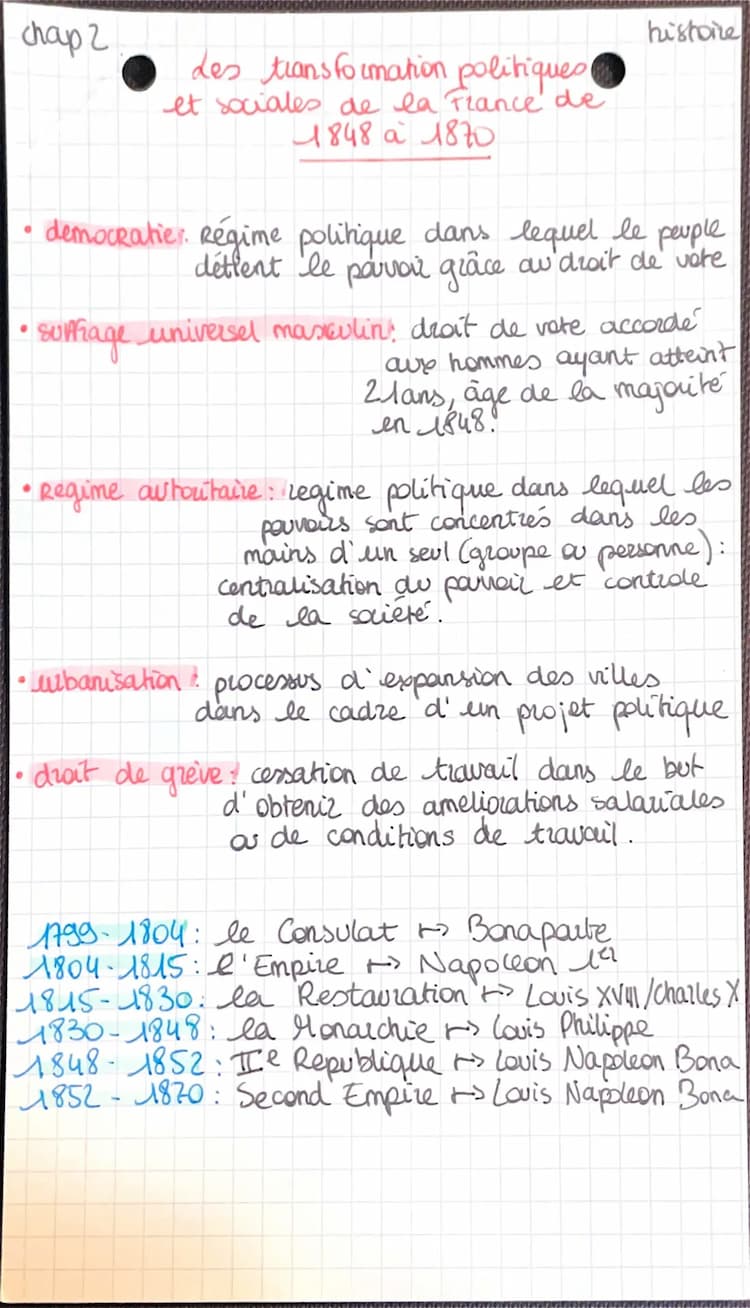 chap 2
histoire
des transformation politiques
et sociales de la France de
1848 à 1870
• democratie: Régime politique dans lequel le peuple
détient le pouvoir grâce au droit de vote
• suffrage universel masculin: droit de vote accordé
aux hommes ayant atteint
21ans, âge de la majorité
en 1848.
• Regime autoritaire: regime politique dans lequel les
pouvoirs sont concentrés dans les
mains d'un seul (groupe ou personne):
centralisation du pouvoir et controle
de la société.
• urbanisation: processus d'expansion des villes
dans le cadre d'un projet politique
• droit de grève: cessation de travail dans le but
d'obtenir des ameliorations salariales
ou de conditions de travail.
1799-1804: le Consulat ↦ Bonaparte
1804-1815: l'Empire ↦ Napoleon 1er
1815-1830: la Restauration ↦ Louis XVIII/Charles X
1830-1848: la Monarchie ↦ Louis Philippe
1848-1852: IIe Republique ↦ Louis Napoleon Bona
1852-1870: Second Empire ↦ Louis Napoleon Bona